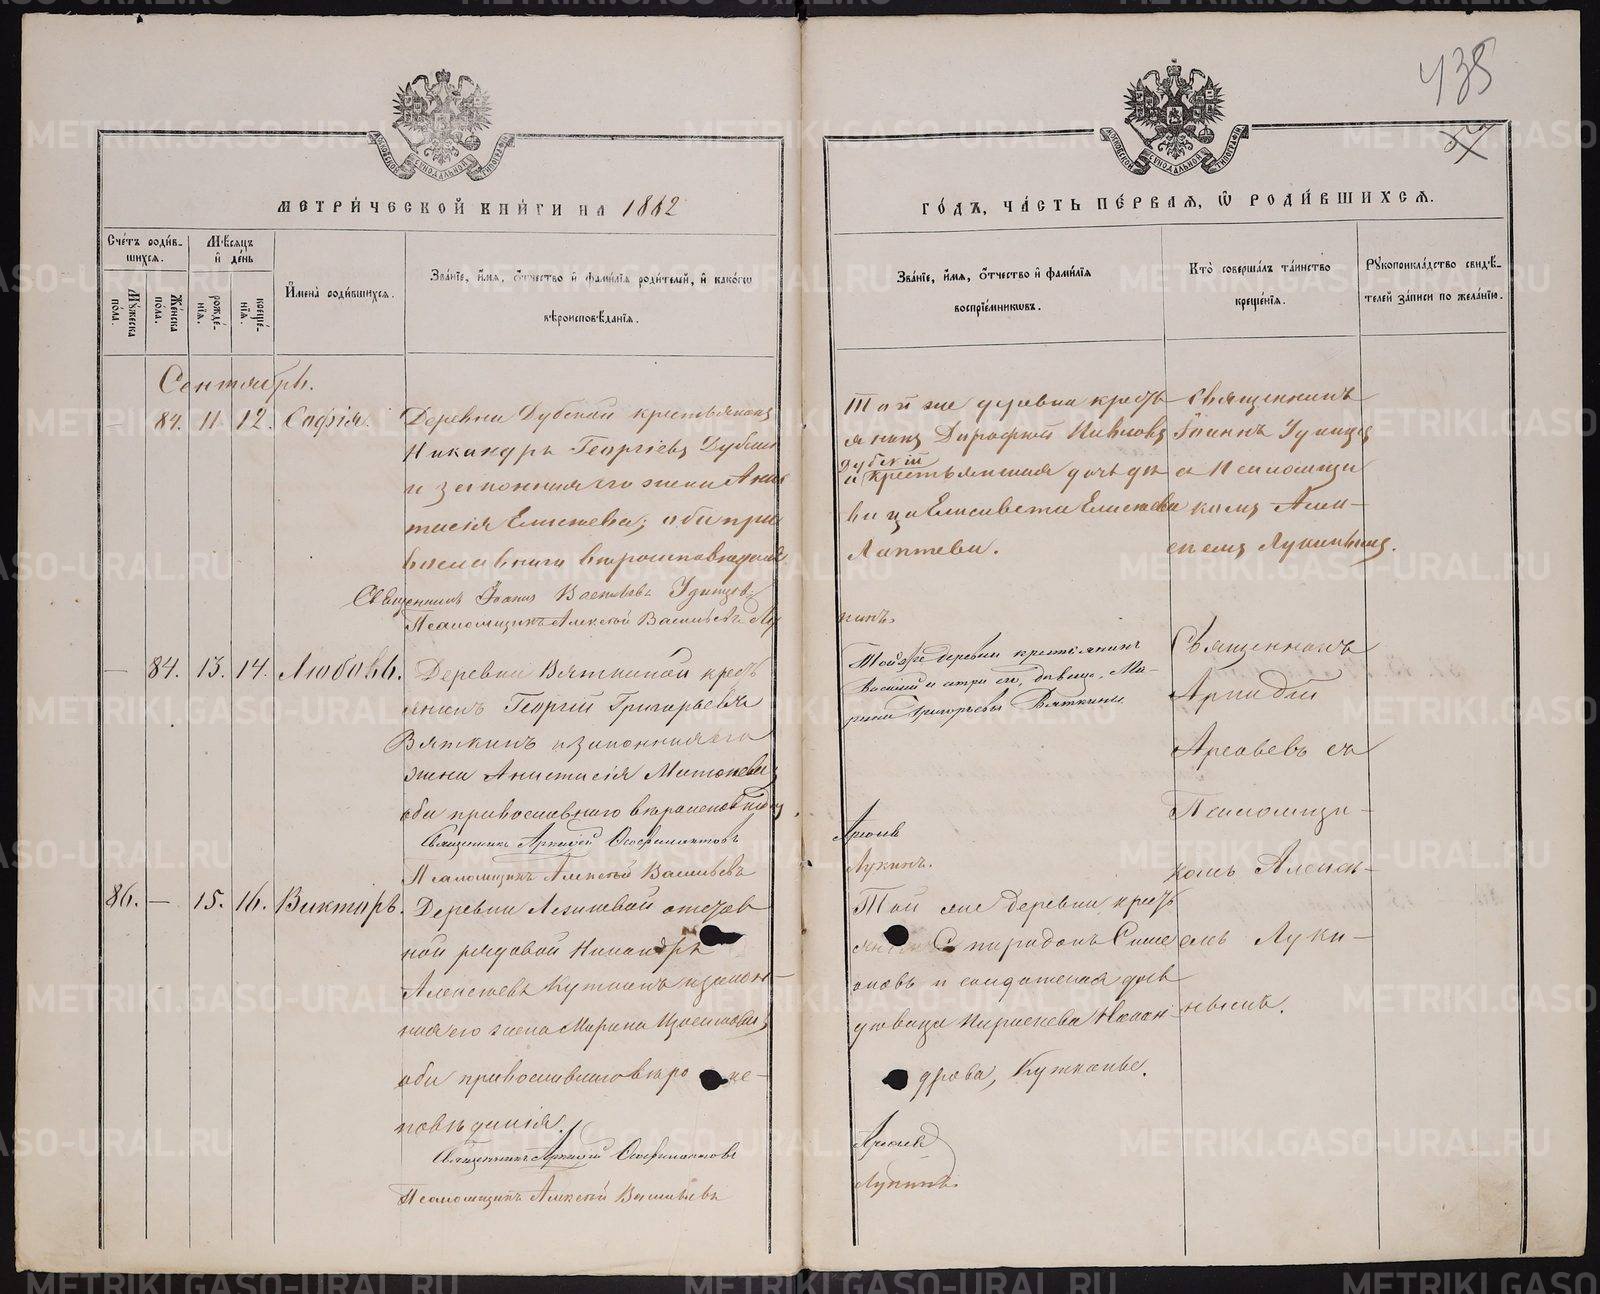 435
МЕТРИ́ЧЕСКОЙ КНИ́ГИ НА 1882
ГО́ДЪ, ЧА́СТЬ ПЕ́РВАЯ, Ѡ РОДИ́ВШИХСЯ.
Сче́тъ роди́в-
шихся.
Мѣ́сяцъ
и де́нь
Мꙋ́жеска
по́ла.
Же́нска
по́ла.
рожде́-
нїя.
креще́-
нїя.
И҆мена̀ роди́вшихся.
Зва́нїе, и҆́мя, ѻ҆́тчество и҆ фами́лїя роди́телей, и҆ како́гѡ
вѣроисповѣ́данїя.
Зва́нїе, и҆́мя, ѻ҆́тчество и҆ фами́лїя
воспрїе́мникѡвъ.
Кто̀ соверша́лъ та́инство
креще́нїя.
Рꙋкоприкла́дство свидѣ́-
телей за́писи по жела́нїю.
Сентябрь.
— 84. 11. 12. Софія.
Деревни Дубской крестьянинъ
Никандръ Георгіевъ Дубской
и законная его жена Анас
тасія Елисѣева; оба пра
вославнаго вѣроисповѣданія.
Священникъ Іоаннъ Удинцов
Псаломщикъ Алексѣй Васильевъ Лу
Той же деревни кресть
янинъ Дорофей Павловъ
Дубскій
и крестьянская дочь дѣ
вица Елисавета Елисѣева
Лаптева.
кинъ.
Священникъ
Іоаннъ Удинцов
съ Псаломщи
комъ Алек-
сѣемъ Лукинымъ.
— 84. 13. 14. Любовь.
Деревни Вяткиной кресть
янинъ Георгій Григорьевъ
Вяткинъ и законная его
жена Анастасія Матѳеева;
оба православнаго вѣроисповѣд
Священникъ Аркадій
Псаломщикъ Алексѣй Васильевъ
Той же деревни крестьянинъ
Василій и сестра его, дѣвица, Ма-
рина Григорьевы Вяткины.
Лукинъ.
Священникъ
Аркадій
съ
Псаломщи-
комъ Алекс-
86. — 15. 16. Викторъ.
Деревни отстав
ной рядовой Никандръ
Алексѣевъ Куткинъ и закон-
ная его жена Марина
оба православнаго вѣро ис-
повѣданія.
Священникъ Аркадій
Псаломщикъ Алексѣй Васильевъ
Той же деревни кресть
Спиридонъ Симе
оновъ и солдатская дочь
дѣвица Никан
дрова, Куткины.
Лукинъ
емъ Луки-
нымъ.